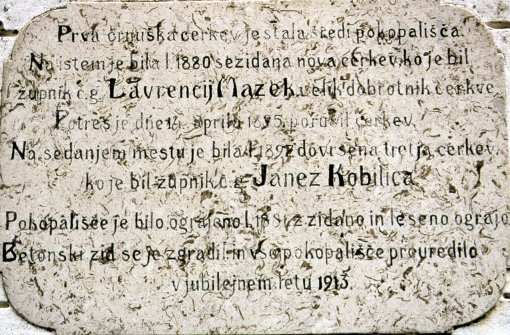 Prva črnuška cerkev je stala sredi pokopališča.
Na istem je bila l. 1880 sezidana nova cerkev, ko je bil
župnik č.g. Lavrencij Mazek, velik dobrotnik cerkve
Potres je dne 14. aprila 1895. porušil cerkev.
Na sedanjem mestu je bila l. 1897 dovršena tretja cerkev,
ko je bil župnik č.g. Janez Kobilica.
Pokopališče je bilo ograjeno l. 1881 z zidano in leseno ograjo
Betonski zid se je zgradil in vse pokopališče preuredilo
v jubilejnem letu 1913.